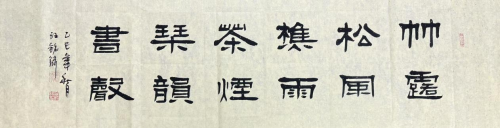 竹露
松風
樵雨
茶煙
琴韻
書聲
乙巳年